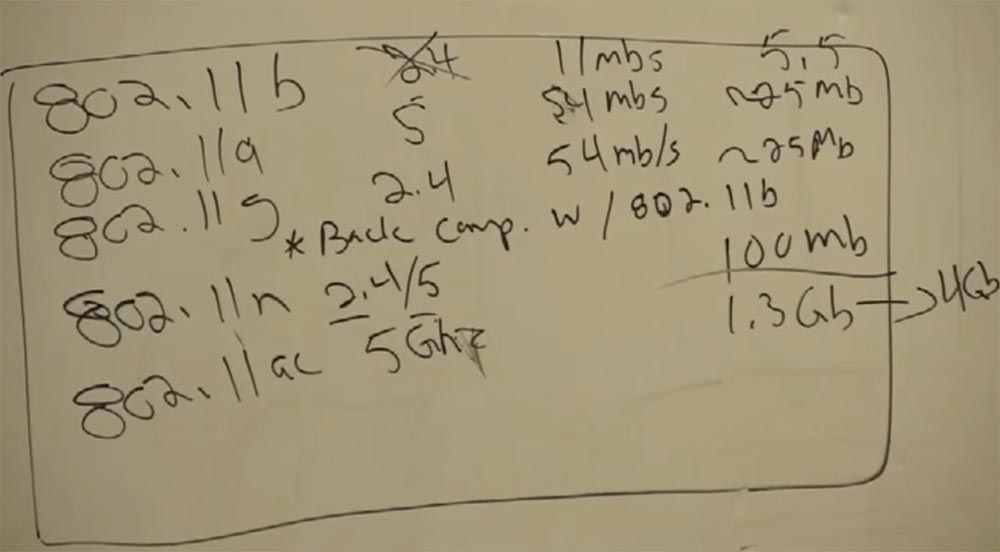 802.11b 24 11mbs 5.5
802.11a 5 54mbs ~25mb
802.11g 2.4 54mb/s ~25Mb
* Back comp. w/802.11b
802.11n 2.4/5 100mb
802.11ac 5Ghz 1.3Gb → 4Gb